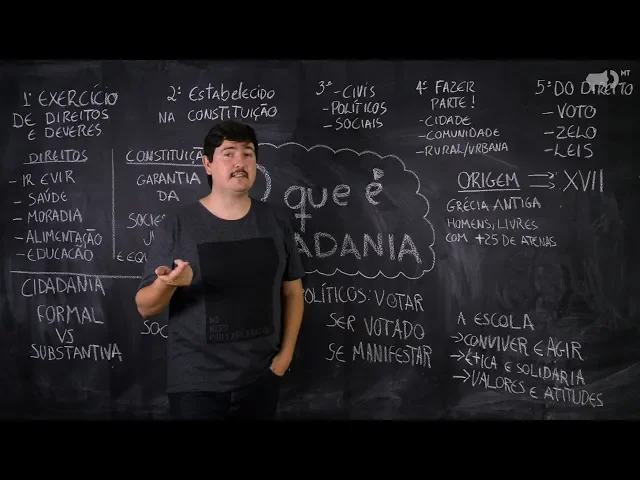 1º EXERCÍCIO
DE DIREITOS
E DEVERES
2º ESTABELECIDO
NA CONSTITUIÇÃO
3º - CIVIS
- POLÍTICOS
- SOCIAIS
4º FAZER
PARTE!
- CIDADE
- COMUNIDADE
- RURAL/URBANA
5º DO DIREITO
- VOTO
- ZELO
- LEIS
MT
DIREITOS
- IR E VIR
- SAÚDE
- MORADIA
- ALIMENTAÇÃO
- EDUCAÇÃO
CONSTITUIÇÃ
GARANTIA
DA
O que é
ADANIA
ORIGEM ⇒ XVII
GRÉCIA ANTIGA
HOMENS, LIVRES
COM +25 DE ATENAS
CIDADANIA
FORMAL
VS
SUBSTANTIVA
POLÍTICOS: VOTAR
SER VOTADO
SE MANIFESTAR
A ESCOLA
→ CONVIVER E AGIR
→ ÉTICA E SOLIDÁRIA
→ VALORES E ATITUDES